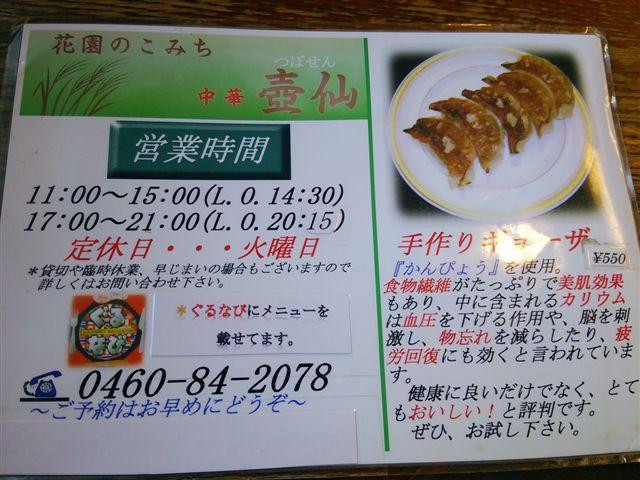 花園のこみち
つぼせん
中華 壺仙
営業時間
11:00〜15:00(L.O.14:30)
17:00〜21:00(L.O.20:15)
定休日・・・火曜日
＊貸切や臨時休業、早じまいの場合もございますので
詳しくはお問い合わせ下さい。
ぐるなび
＊ぐるなびにメニューを
載せてます。
0460-84-2078
〜ご予約はお早めにどうぞ〜
手作りギョーザ
¥550
『かんぴょう』を使用。
食物繊維がたっぷりで美肌効果
もあり、中に含まれるカリウム
は血圧を下げる作用や、脳を刺
激し、物忘れを減らしたり、疲
労回復にも効くと言われていま
す。
健康に良いだけでなく、とて
もおいしい！と評判です。
ぜひ、お試し下さい。